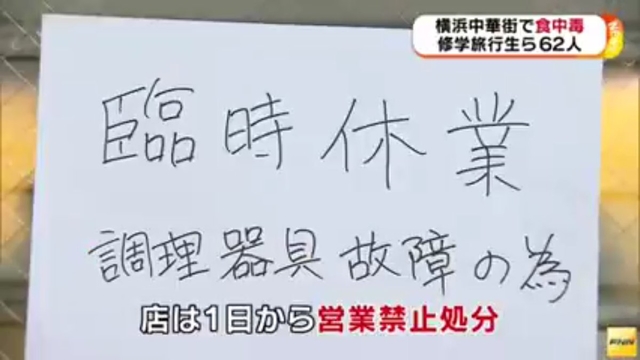 横浜中華街で食中毒
修学旅行生ら62人
臨時休業
調理器具故障の為
店は1日から営業禁止処分
FNN